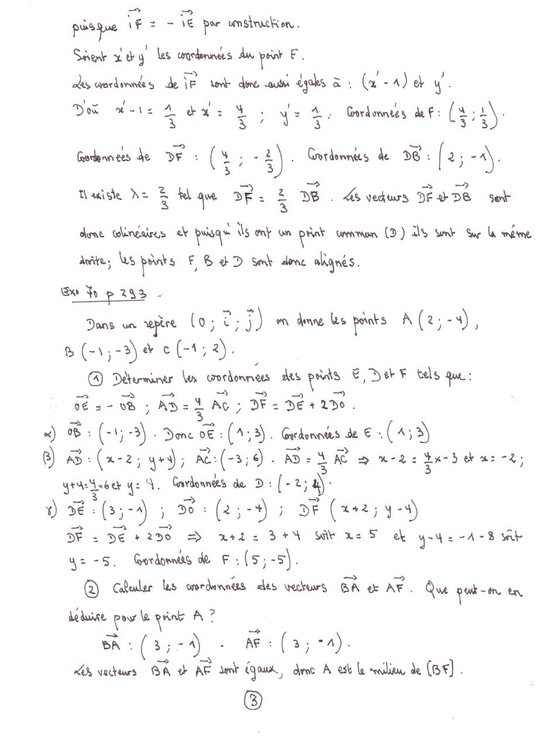 puisque iF = - iE par construction.
Soient x' et y' les coordonnées du point F.
Les coordonnées de iF sont donc aussi égales à : (x' - 1) et y'.
D'où x' - 1 = 1/3 et x' = 4/3 ; y' = 1/3. Coordonnées de F : (4/3 ; 1/3).
Coordonnées de DF : (4/3 ; - 2/3). Coordonnées de DB : (2 ; -1).
Il existe λ = 2/3 tel que DF = 2/3 DB. Les vecteurs DF et DB sont
donc colinéaires et puisqu'ils ont un point commun (D) ils sont sur la même
droite ; les points F, B et D sont donc alignés.
Exo 70 p 293
Dans un repère (O ; i ; j) on donne les points A (2 ; -4),
B (-1 ; -3) et C (-1 ; 2).
① Déterminer les coordonnées des points E, D et F tels que :
OE = - OB ; AD = 4/3 AC ; DF = DE + 2DO.
α) OB : (-1 ; -3). Donc OE : (1 ; 3). Coordonnées de E : (1 ; 3)
β) AD : (x - 2 ; y + 4) ; AC : (-3 ; 6). AD = 4/3 AC ⇒ x - 2 = 4/3 x -3 et x = -2 ;
y + 4 = 4/3 x 6 et y = 4. Coordonnées de D : (-2 ; 4).
γ) DE : (3 ; -1) ; DO : (2 ; -4) ; DF (x + 2 ; y - 4)
DF = DE + 2DO ⇒ x + 2 = 3 + 4 soit x = 5 et y - 4 = -1 - 8 soit
y = -5. Coordonnées de F : (5 ; -5).
② Calculer les coordonnées des vecteurs BA et AF. Que peut-on en
déduire pour le point A ?
BA : (3 ; -1). AF : (3 ; -1).
Les vecteurs BA et AF sont égaux, donc A est le milieu de [BF].
③